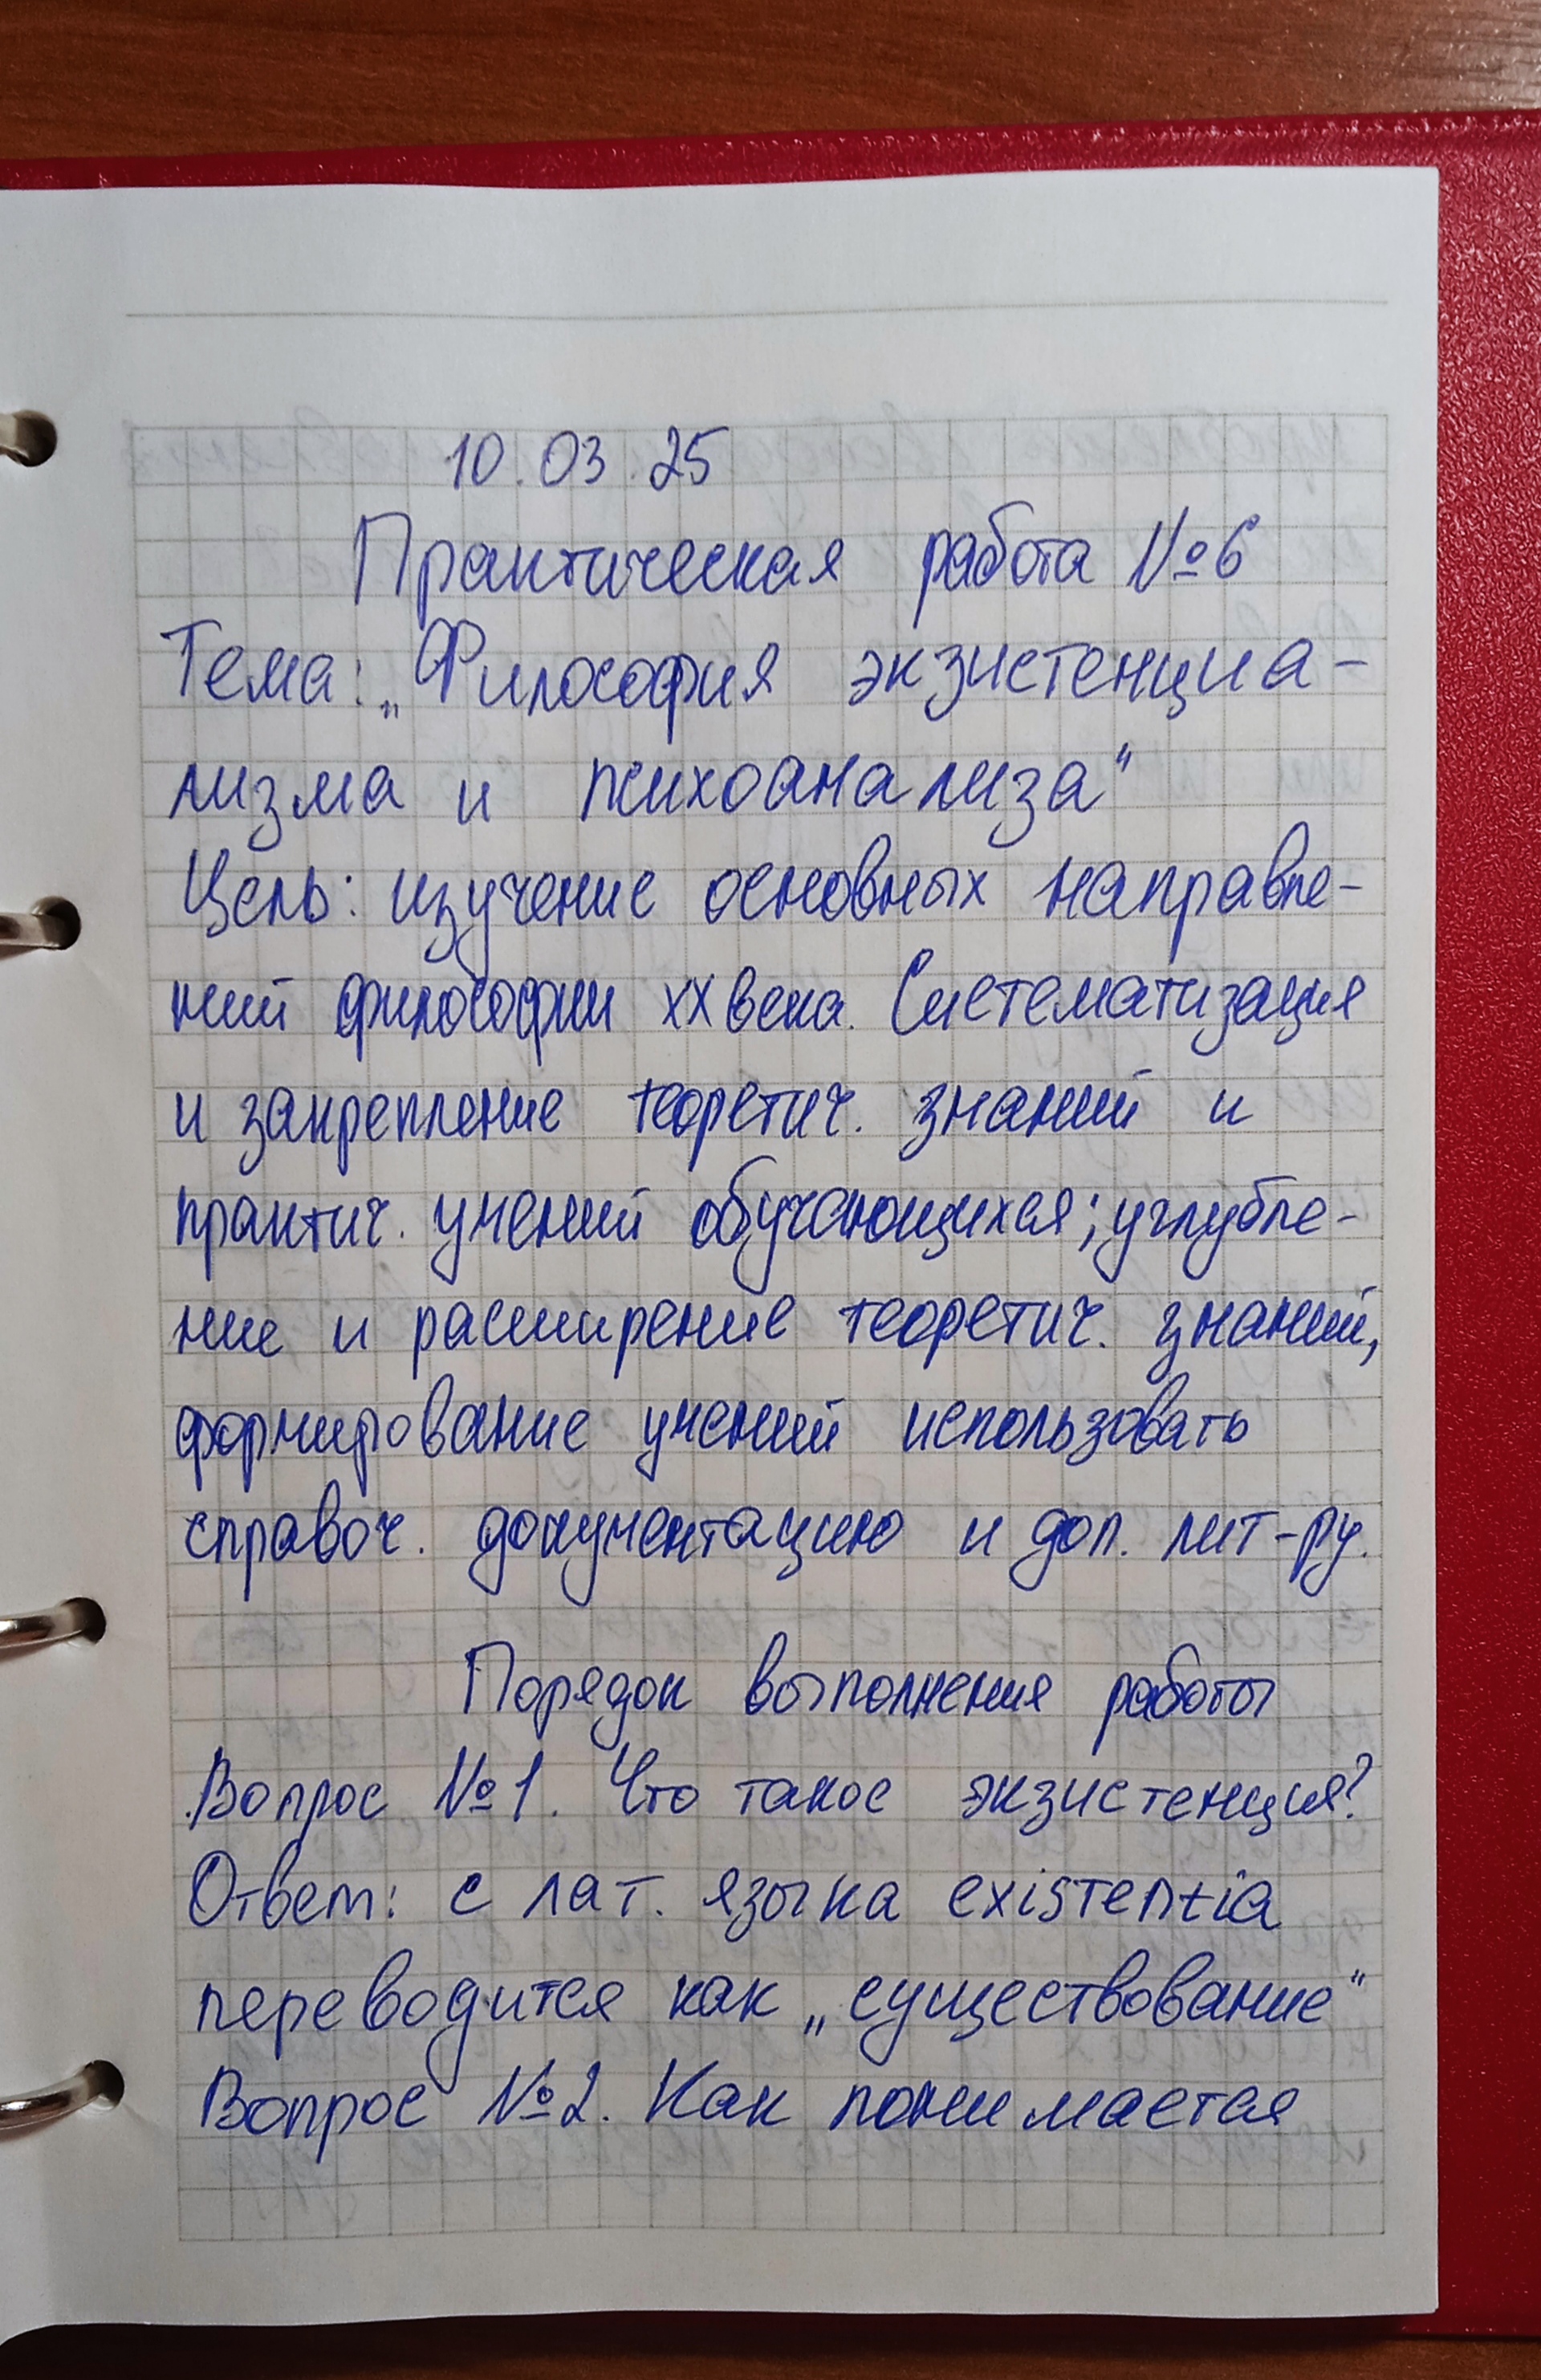 10.03.25
Практическая работа №6
Тема: „Философия экзистенциа-
лизма и психоанализа“
Цель: изучение основных направле-
ний философии XX века. Систематизация
и закрепление теоретич. знаний и
практич. умений обучающихся; углубле-
ние и расширение теоретич. знаний,
формирование умений использовать
справоч. документацию и доп. лит-ру.
Порядок выполнения работы
Вопрос №1. Что такое экзистенция?
Ответ: с лат. языка existentia
переводится как „существование“
Вопрос №2. Как понимается